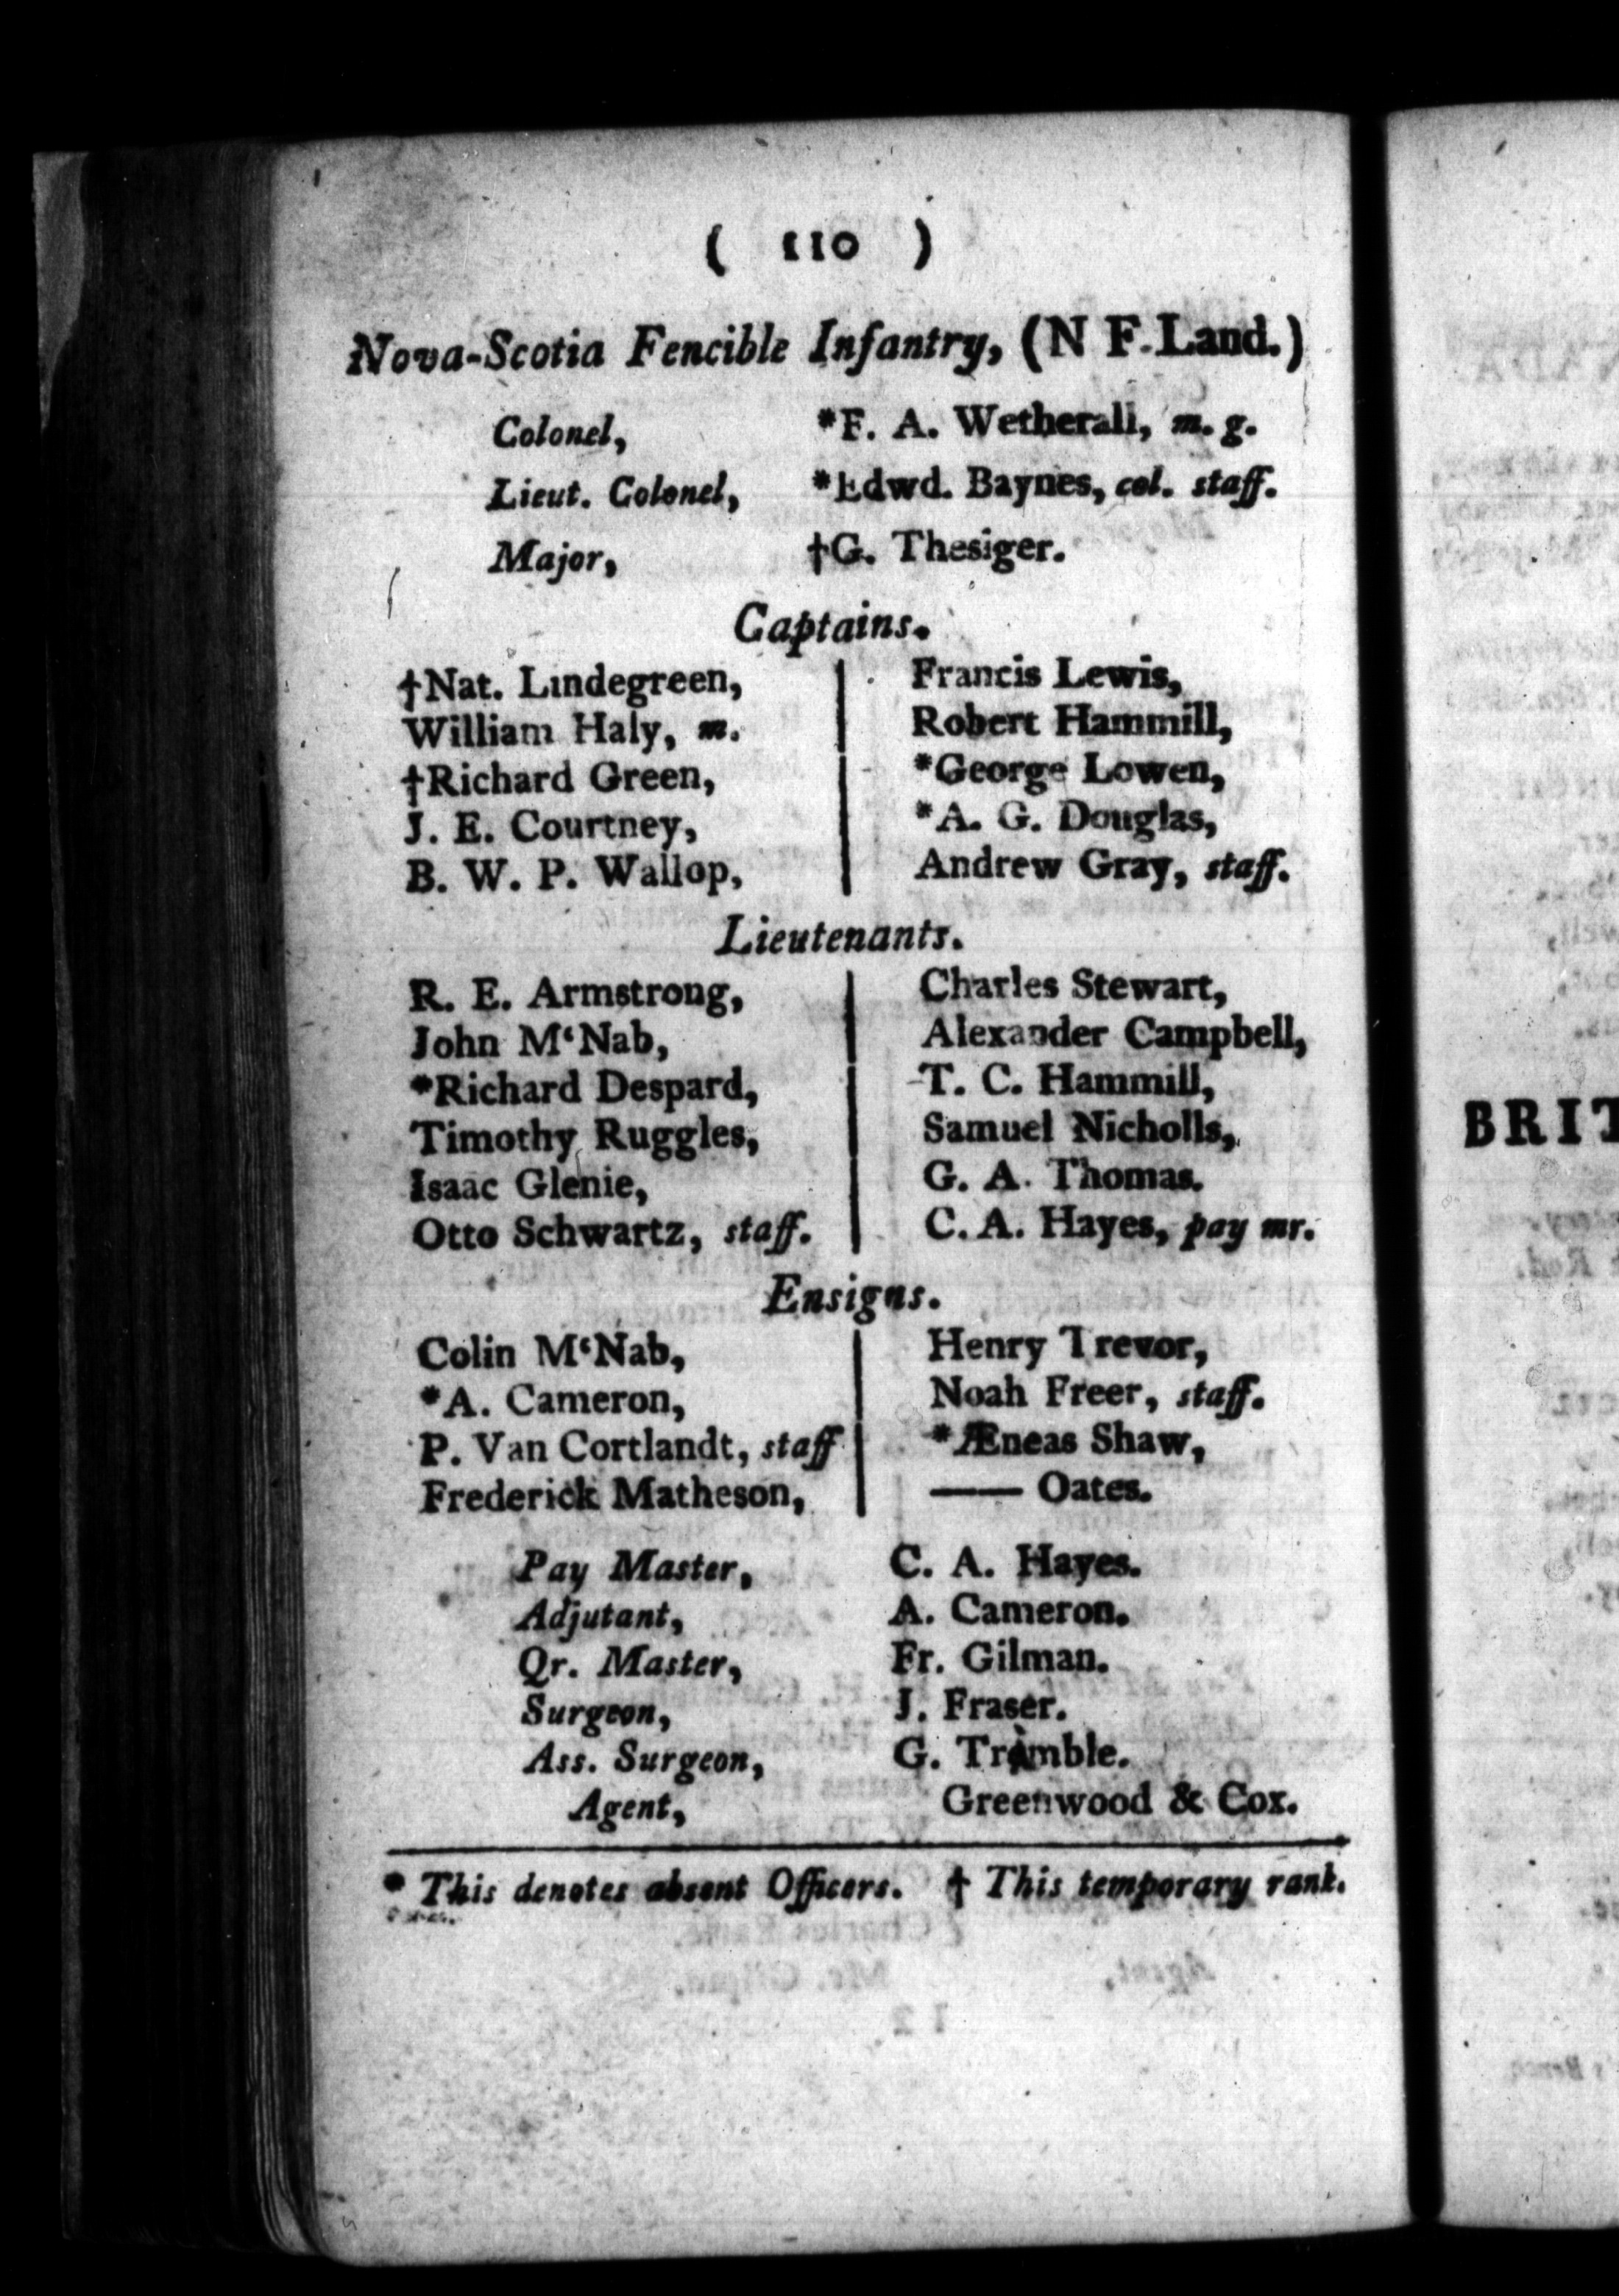 ( 110 )
Nova-Scotia Fencible Infantry, (N F. Land.)
Colonel, *F. A. Wetherall, m. g.
Lieut. Colonel, *Edwd. Baynes, col. staff.
Major, †G. Thesiger.
Captains.
†Nat. Lindegreen,
William Haly, m.
†Richard Green,
J. E. Courtney,
B. W. P. Wallop,
Francis Lewis,
Robert Hammill,
*George Lowen,
*A. G. Douglas,
Andrew Gray, staff.
Lieutenants.
R. E. Armstrong,
John M‘Nab,
*Richard Despard,
Timothy Ruggles,
Isaac Glenie,
Otto Schwartz, staff.
Charles Stewart,
Alexander Campbell,
T. C. Hammill,
Samuel Nicholls,
G. A. Thomas.
C. A. Hayes, pay mr.
Ensigns.
Colin M‘Nab,
*A. Cameron,
P. Van Cortlandt, staff
Frederick Matheson,
Henry Trevor,
Noah Freer, staff.
*Æneas Shaw,
—— Oates.
Pay Master, C. A. Hayes.
Adjutant, A. Cameron.
Qr. Master, Fr. Gilman.
Surgeon, J. Fraser.
Ass. Surgeon, G. Trimble.
Agent, Greenwood & Cox.
* This denotes absent Officers. † This temporary rank.
BRIT